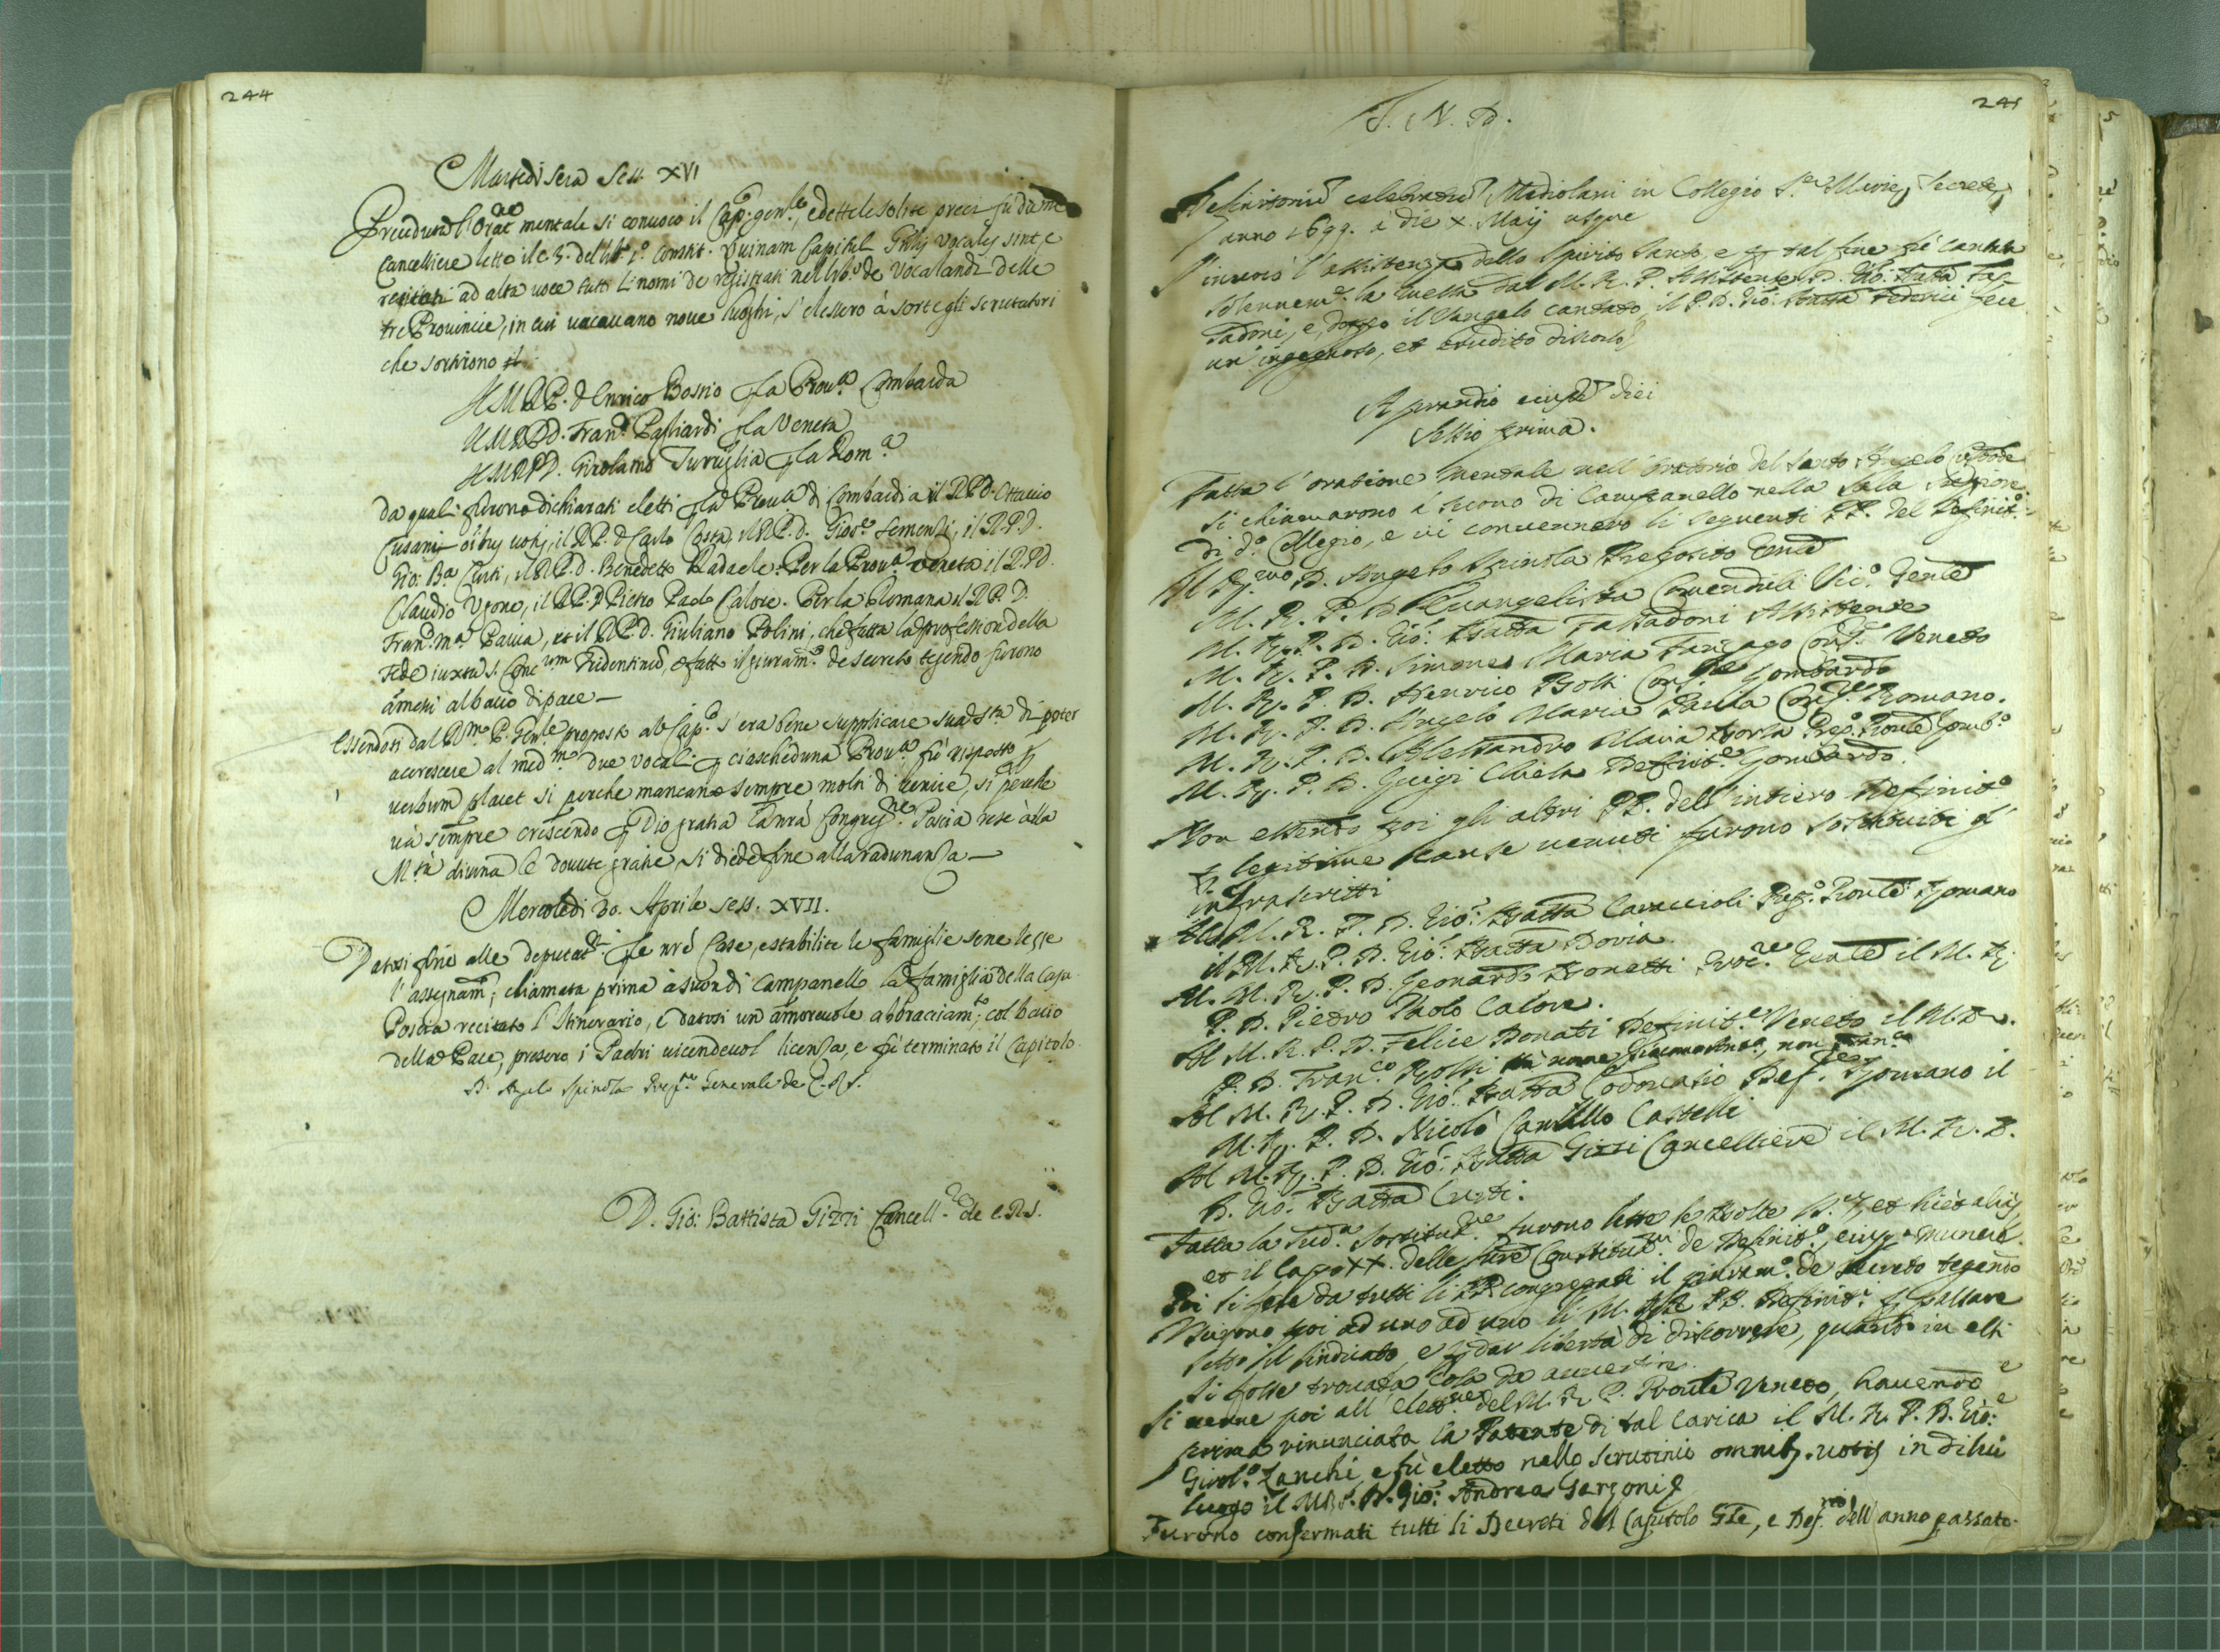 244
Martedì sera Sess. XVI
Precedura l'Oraõne mentale si convocò il Cap.º gen.le, e dette le solite preci fù da me
Cancelliere letto il c. 3. del lib. 1.º Constit. Quinam Capituli Gñlis vocales sint, e
recitati ad alta voce tutti li nomi de registrati nel lib.º de Vocalandi delle
tre Provincie, in cui vacavano nove luoghi, s'elessero à sorte gli scrutatori
che sortirono
Il M.R.P. D. Enrico Bossio p la Prov.a Lombarda
Il M.R.P.D. Fran.º Pagliardi p la Veneta
Il M.R.P.D. Girolamo Turriglia p la Rom.a
da quali furono dichiarati eletti p la Prov.a di Lombardia il R.P.D. Ottavio
Cusani oĩbus votis, il R.P. D. Carlo Costa, il R.P.D. Gios.e Sementi, il R.P.D.
Gio: B.a Curti, il R.P.D. Benedetto Radaele. Per la Prov.a Veneta il R.P.D.
Claudio Ugone, il R.P.D. Pietro Paolo Calore. Per la Romana il R.P.D.
Fran.º M.a Pavia, et il R.P.D. Giuliano Polini, che fatta la professione della
Fede iuxta S. Conc.um Tridentinũ, e fatto il giuram.º de secreto tegendo furono
am̃essi al bacio di pace —
Essendosi dal R.mo P. Gen.le proposto al Cap.º s'era bene supplicare sua S.tà di poter
accrescere al med.mo due vocali p ciascheduna Prov.a, fù risposto p
verbum placet si perche mancano sempre molti di venire, si perche
và sempre crescendo p Dio gratia la nrã Congreg.ne. Poscia rese alla
M.tà divina le dovute gratie, si diede fine alla radunanza —
Mercoledì 30. Aprile Sess. XVII.
Datosi fine alle deputat.ni p le nrẽ Case, e stabilite le famiglie se ne lesse
l'assegnam.º, chiamata prima à suon di Campanello la famiglia della Casa.
Poscia recitato l'Itinerario, e datosi un amorevole abbracciam.to, col bacio
della Pace, presero i Padri vicendevol licenza, e fù terminato il Capitolo.
D. Angelo Spinola Prep.to Generale de C.R.S.
D. Gio: Battista Gizzi Cancell.re de C.R.S.
245
I. N. D.
Definitoriũ celebratũ Mediolani in Collegio S.ae Mariae Secretae
anno 1699. a die X. Maij usque
S'invocò l'assistenza dello Spirito Santo, e p tal fine fù cantata
solennem.e la messa dal M. R. P. Assistente D. Gio: Batta Fas-
sadoni, e doppo il Vangelo cantato, il P.D. Gio: Batta Federici fece
un'ingegnoso, et erudito discorso
A prandio eiusd. diei
Sessio prima.
Fatta l'oratione mentale nell'Oratorio del Santo Angelo Custode
si chiamarono à suono di Campanello nella Sala superiore
di d.º Collegio, e vi convennero li seguenti PP. del Definit.º
Il R.mo D. Angelo Spinola Preposito Gñle
M. R. P. D. Evangelista Comenduli Vic.º Gen̄le
M. R. P. D. Gio: Batta Fassadoni Assistente
M. R. P. D. Simone Maria Fanzago Cons.re Veneto
M. R. P. D. Henrico Bossi Cons.re Lombardo
M. R. P. D. Angelo Maria Pavia Cons.re Romano.
M. R. P. D. Alessandro Maria Porta Prep.º Prov̄le Lomb.º
M. R. P. D. Luigi Chiesa Definit.e Lombardo.
Non essendo poi gli altri PP. dell'intiero Definit.º
p legitime cause venuti furono sostituiti gl'
infrascritti
Al M. R. P. D. Gio: Batta Caraccioli Prep.º Prov̄le Romano
il M. R. P. D. Gio: Batta Doria.
Al M. R. P. D. Leonardo Bonetti Proc.re Gen̄le il M. R.
P. D. Pietro Paolo Calore.
Al M. R. P. D. Felice Donati Definit.e Veneto il M. R.
P. D. Fran.co Rossi
Al M. R. P. D. Gio: Batta Codonasio Def.re Romano il
M. R. P. D. Nicolò Camillo Castelli
Al M. R. P. D. Gio: Batta Gizzi Cancelliere il M. R. P.
D. Gio: Batta Curti.
Fatta la sud.a sostitut.ne furono lette le Bolle et
et il Capo XX. delle ñre Constitut.ni de Definit.º, eiusq. munere.
Poi si fece da tutti li PP. congregati il giuram.º de secreto tegendo
Uscirono poi ad uno ad uno li M. RR. PP. Definit.i p passare
sotto il sindicato, e p dar libertà di discorrere, quando in essi
si fosse trovata cosa da avvertire.
Si venne poi all'elett.ne del M. R. P. Prov̄le Veneto, havendo
prima rinunciata la Patente di tal carica il M. R. P. D. Gio:
Girol.º Zanchi, e fù eletto nello scrutinio omnib. votis in di lui
luogo il M.R.P. D. Gio: Andrea Garzoni
Furono confermati tutti li Decreti del Capitolo Gñle, e Def.rio dell'anno passato.